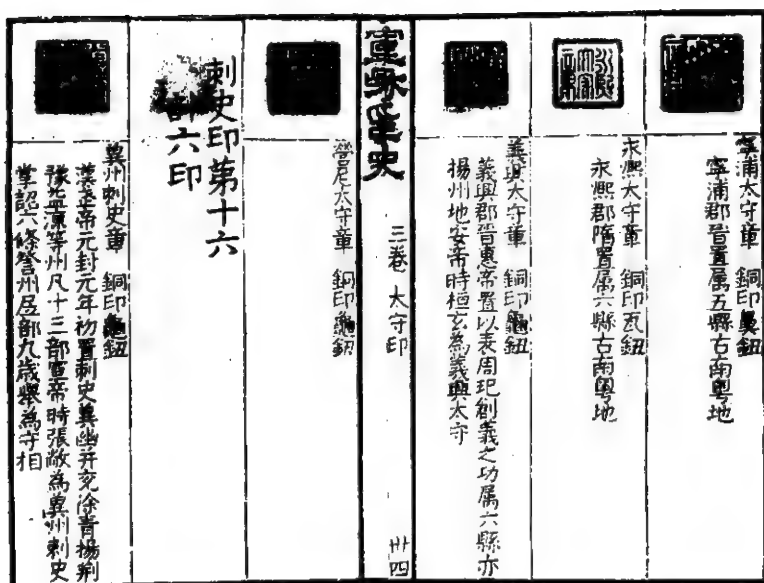 寧浦太守章 銅印鼻鈕
寧浦郡晉置属五縣古南粤地
永熙太守章 銅印瓦鈕
永熙郡隋置属六縣古南粤地
義興太守章 銅印龜鈕
義興郡晉惠帝置以表周玘創義之功属六縣亦
揚州地安帝時桓玄為義興太守
三卷 太守印
卅四
營尼太守章 銅印龜鈕
刺史印第十六
六印
冀州刺史章 銅印龜鈕
帝元封元年初置刺史冀幽并兖徐青揚荆
豫益凉等州凡十三部宣帝時張敞為冀州刺史
掌詔六條詧州居部九歳舉為守相